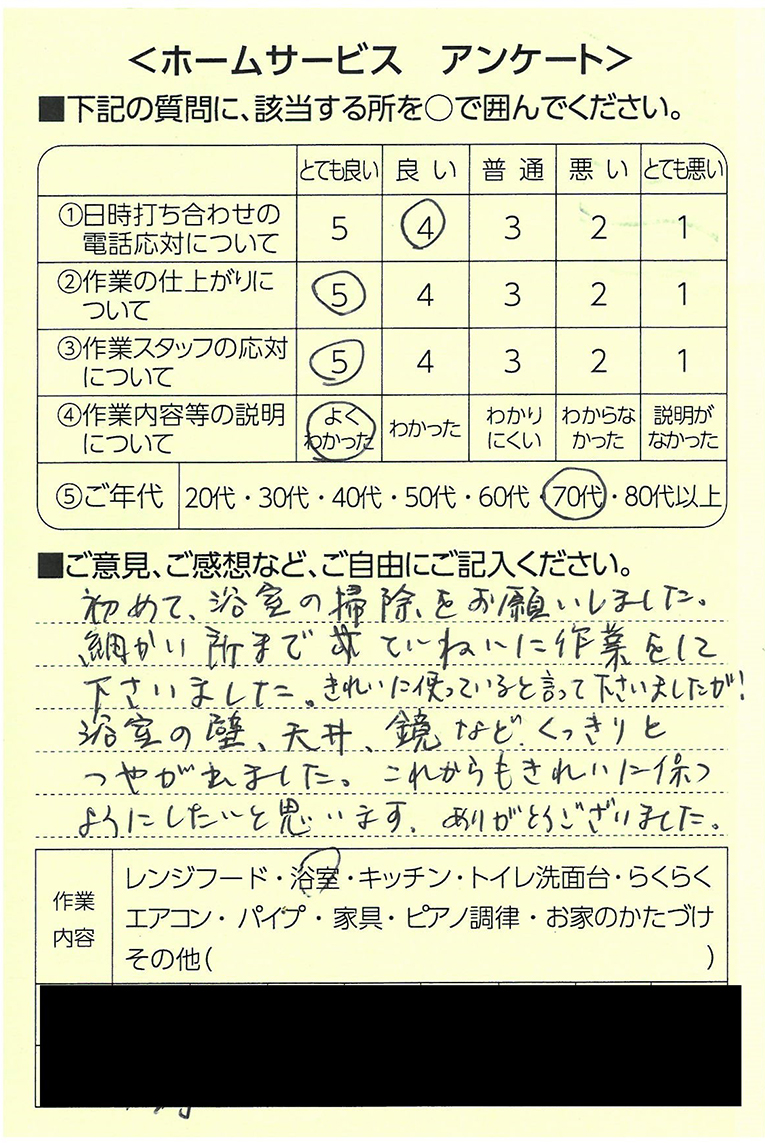 ＜ホームサービス　アンケート＞
■下記の質問に、該当する所を○で囲んでください。
とても良い 良い 普通 悪い とても悪い
①日時打ち合わせの
電話応対について 5 4 3 2 1
②作業の仕上がりに
ついて 5 4 3 2 1
③作業スタッフの応対
について 5 4 3 2 1
④作業内容等の説明
について よくわかった わかった わかりにくい わからなかった 説明がなかった
⑤ご年代 20代・30代・40代・50代・60代・70代・80代以上
■ご意見、ご感想など、ご自由にご記入ください。
初めて、浴室の掃除をお願いしました。
細かい所まで ていねいに作業をして
下さいました。きれいに使っていると言って下さいましたが！
浴室の壁、天井、鏡など、くっきりと
つやが出ました。これからもきれいに保つ
ようにしたいと思います。ありがとうございました。
作業
内容
レンジフード・浴室・キッチン・トイレ洗面台・らくらく
エアコン・パイプ・家具・ピアノ調律・お家のかたづけ
その他(　　　)